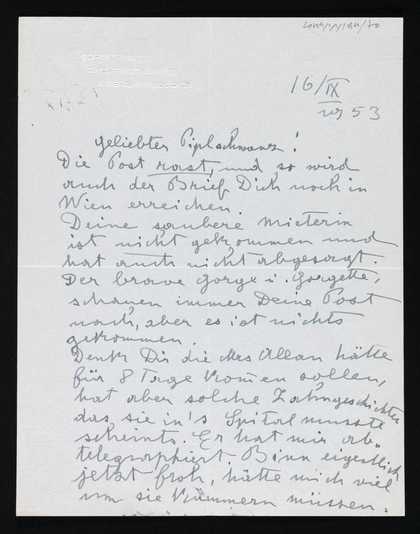 16/IX
1953
Geliebter Piplschwanz!
Die Post rast, und so wird
auch der Brief Dich noch in
Wien erreichen.
Deine saubere Mieterin
ist nicht gekommen und
hat auch nicht abgesagt.
Der brave Gorge u. Gorgette,
schauen immer Deine Post
nach, aber es ist nichts
gekommen.
Denk Dir die Mrs Allan hätte
für 8 Tage kom̄en sollen,
hat aber solche Zahngeschichten
das sie in's Spital musste
scheints. Er hat mir ab-
telegraphiert. Binn eigentlich
jetzt froh, hätte mich viel
um sie kümmern müssen.